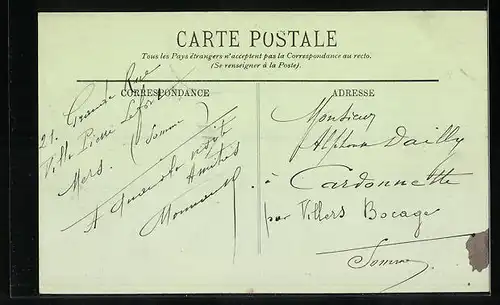 CARTE POSTALE
Tous les Pays étrangers n'acceptent pas la Correspondance au recto.
(Se renseigner à la Poste).
CORRESPONDANCE
21. Grande Rue
Villa Pierre
Mers. (Somme)
A quand
Amitiés
ADRESSE
Monsieur
Dailly
à Cardonnette
par Villers Bocage
Somme